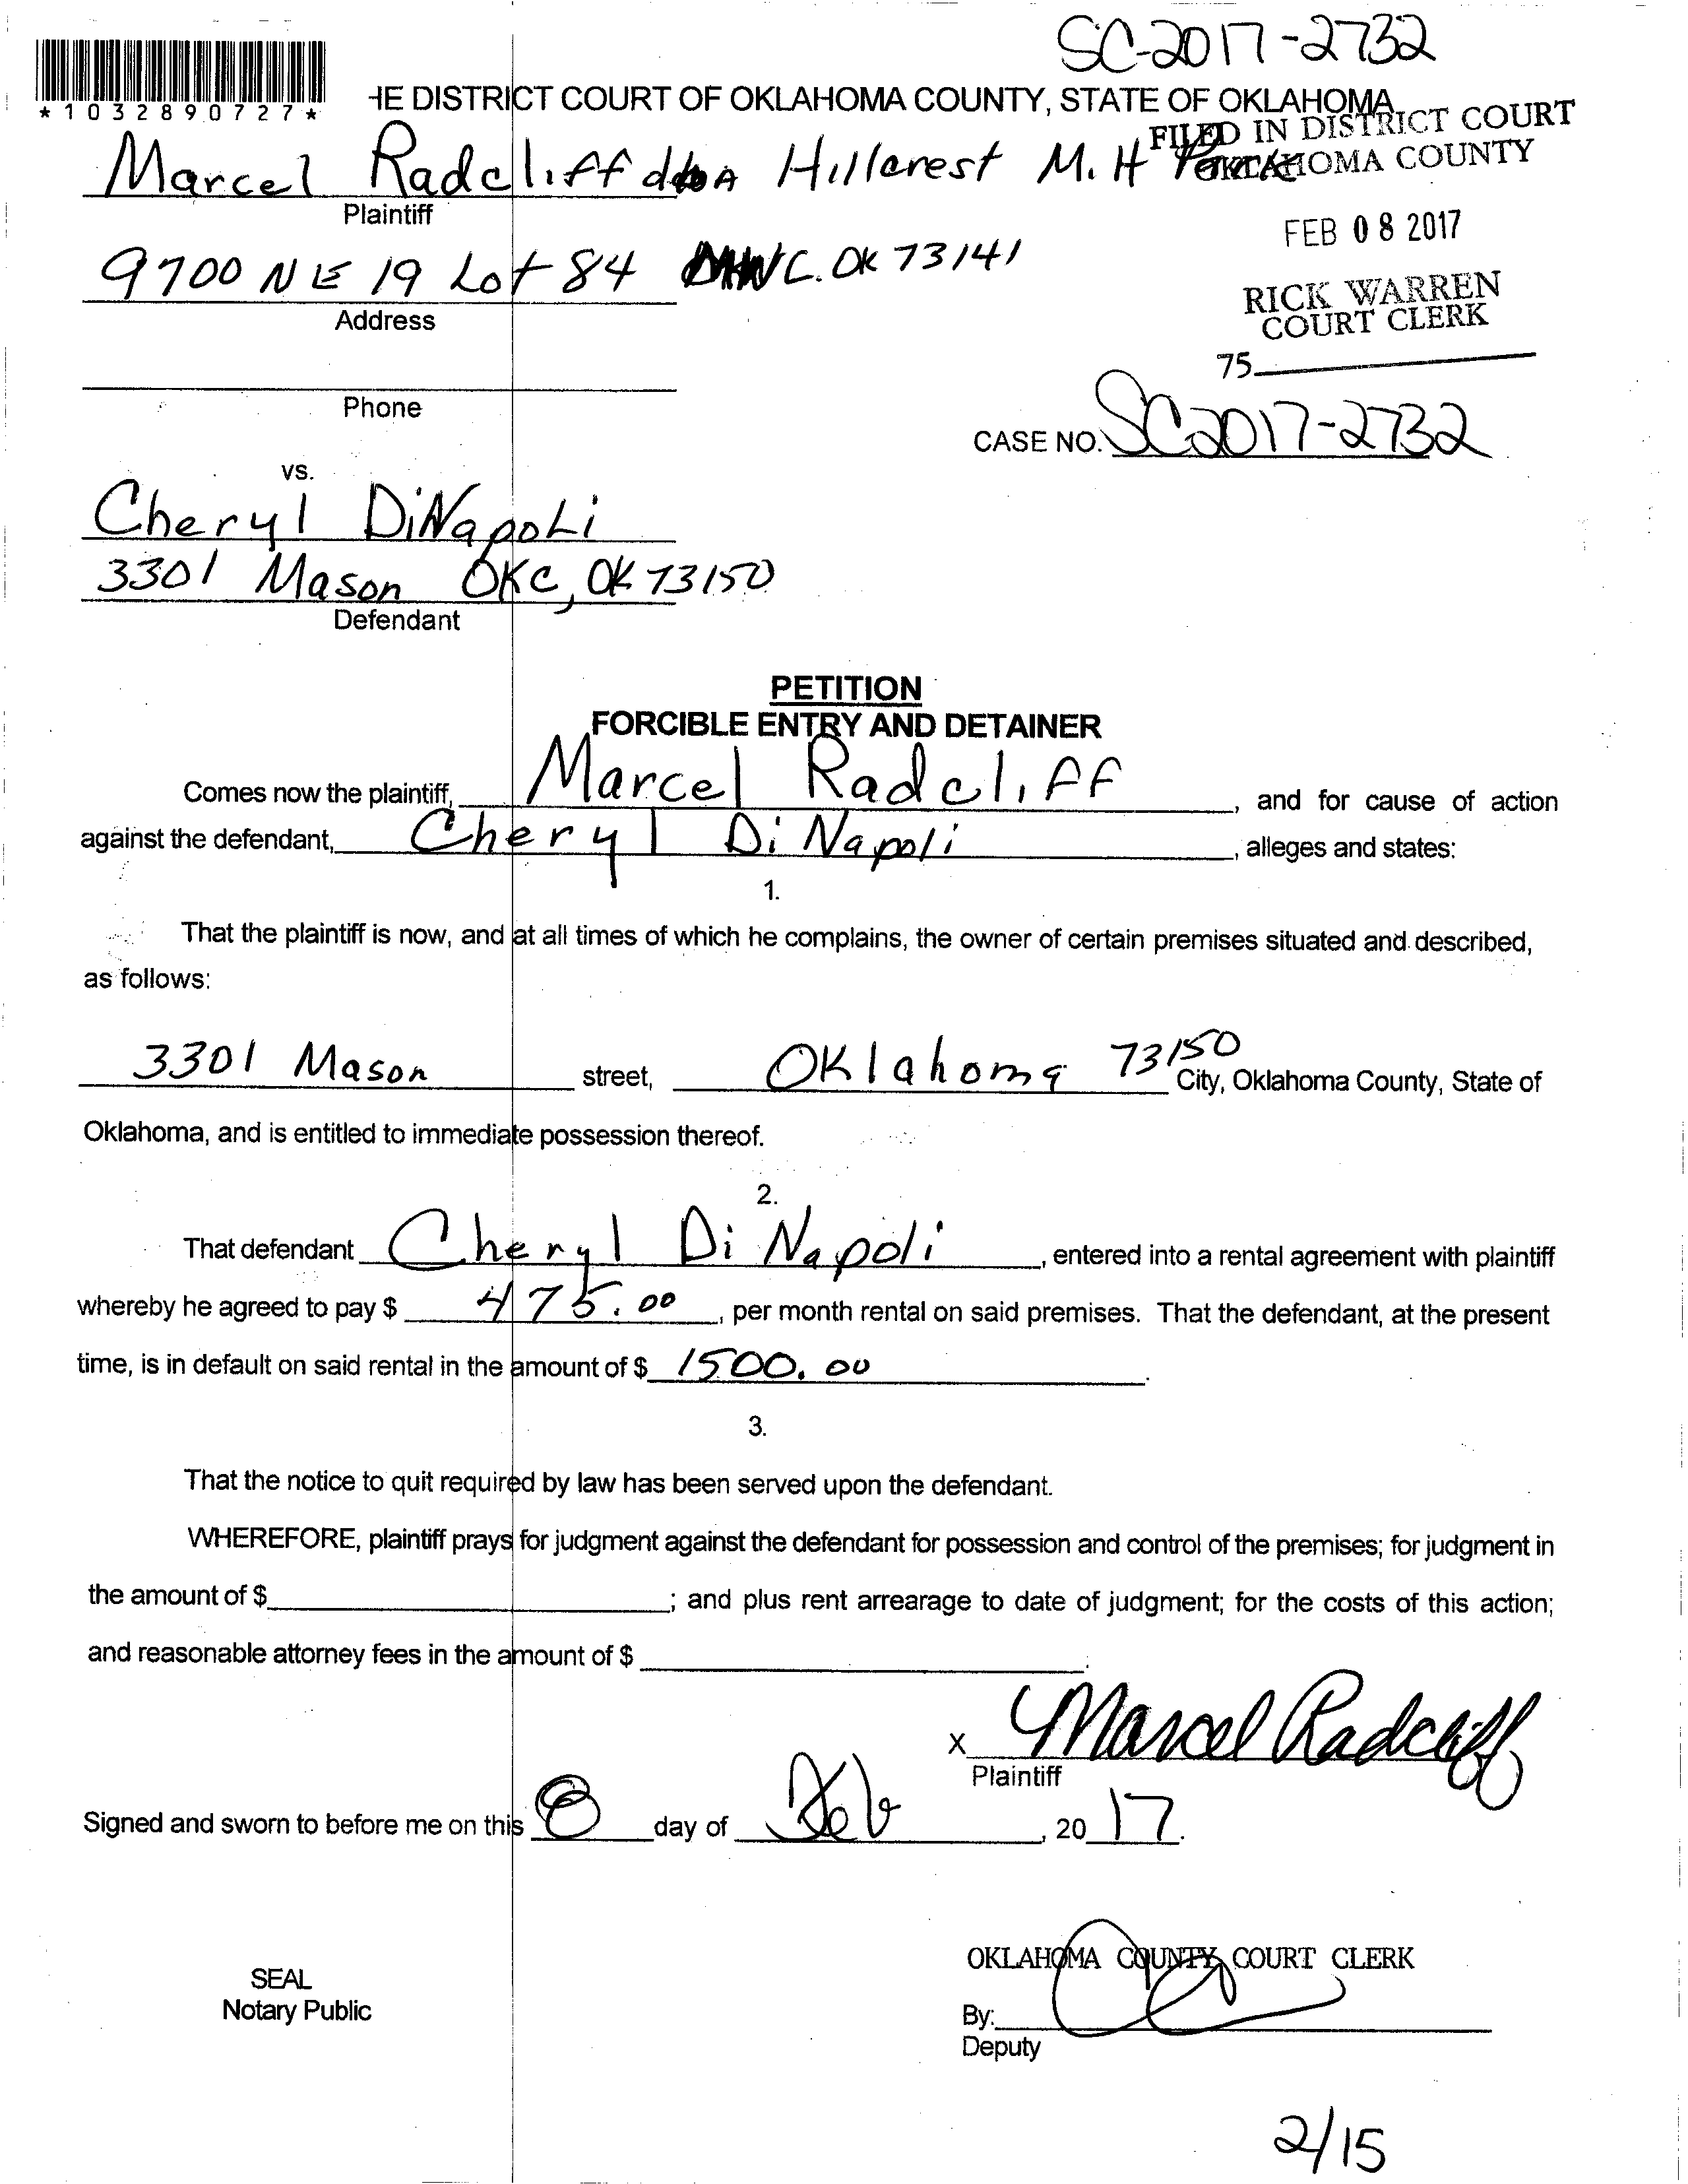 SC-2017-2732
*1032890727*
HE DISTRICT COURT OF OKLAHOMA COUNTY, STATE OF OKLAHOMA
FILED IN DISTRICT COURT
OKLAHOMA COUNTY
Marcel Radcliff dba Hillcrest M.H Park
Plaintiff
FEB 08 2017
9700 NE 19 Lot 84 MWC. OK 73141
Address
RICK WARREN
COURT CLERK
75
Phone
CASE NO. SC2017-2732
vs.
Cheryl DiNapoLi
3301 Mason OKC, OK 73150
Defendant
PETITION
FORCIBLE ENTRY AND DETAINER
Comes now the plaintiff, Marcel Radcliff, and for cause of action
against the defendant, Cheryl Di Napoli, alleges and states:
1.
That the plaintiff is now, and at all times of which he complains, the owner of certain premises situated and described,
as follows:
3301 Mason street, Oklahoma 73150 City, Oklahoma County, State of
Oklahoma, and is entitled to immediate possession thereof.
2.
That defendant Cheryl Di Napoli, entered into a rental agreement with plaintiff
whereby he agreed to pay $ 475.00, per month rental on said premises. That the defendant, at the present
time, is in default on said rental in the amount of $ 1500.00.
3.
That the notice to quit required by law has been served upon the defendant.
WHEREFORE, plaintiff prays for judgment against the defendant for possession and control of the premises; for judgment in
the amount of $ ; and plus rent arrearage to date of judgment; for the costs of this action;
and reasonable attorney fees in the amount of $ .
X Marcel Radcliff
Plaintiff
Signed and sworn to before me on this 8 day of Feb, 2017.
OKLAHOMA COUNTY COURT CLERK
SEAL
Notary Public
By:
Deputy
2/15